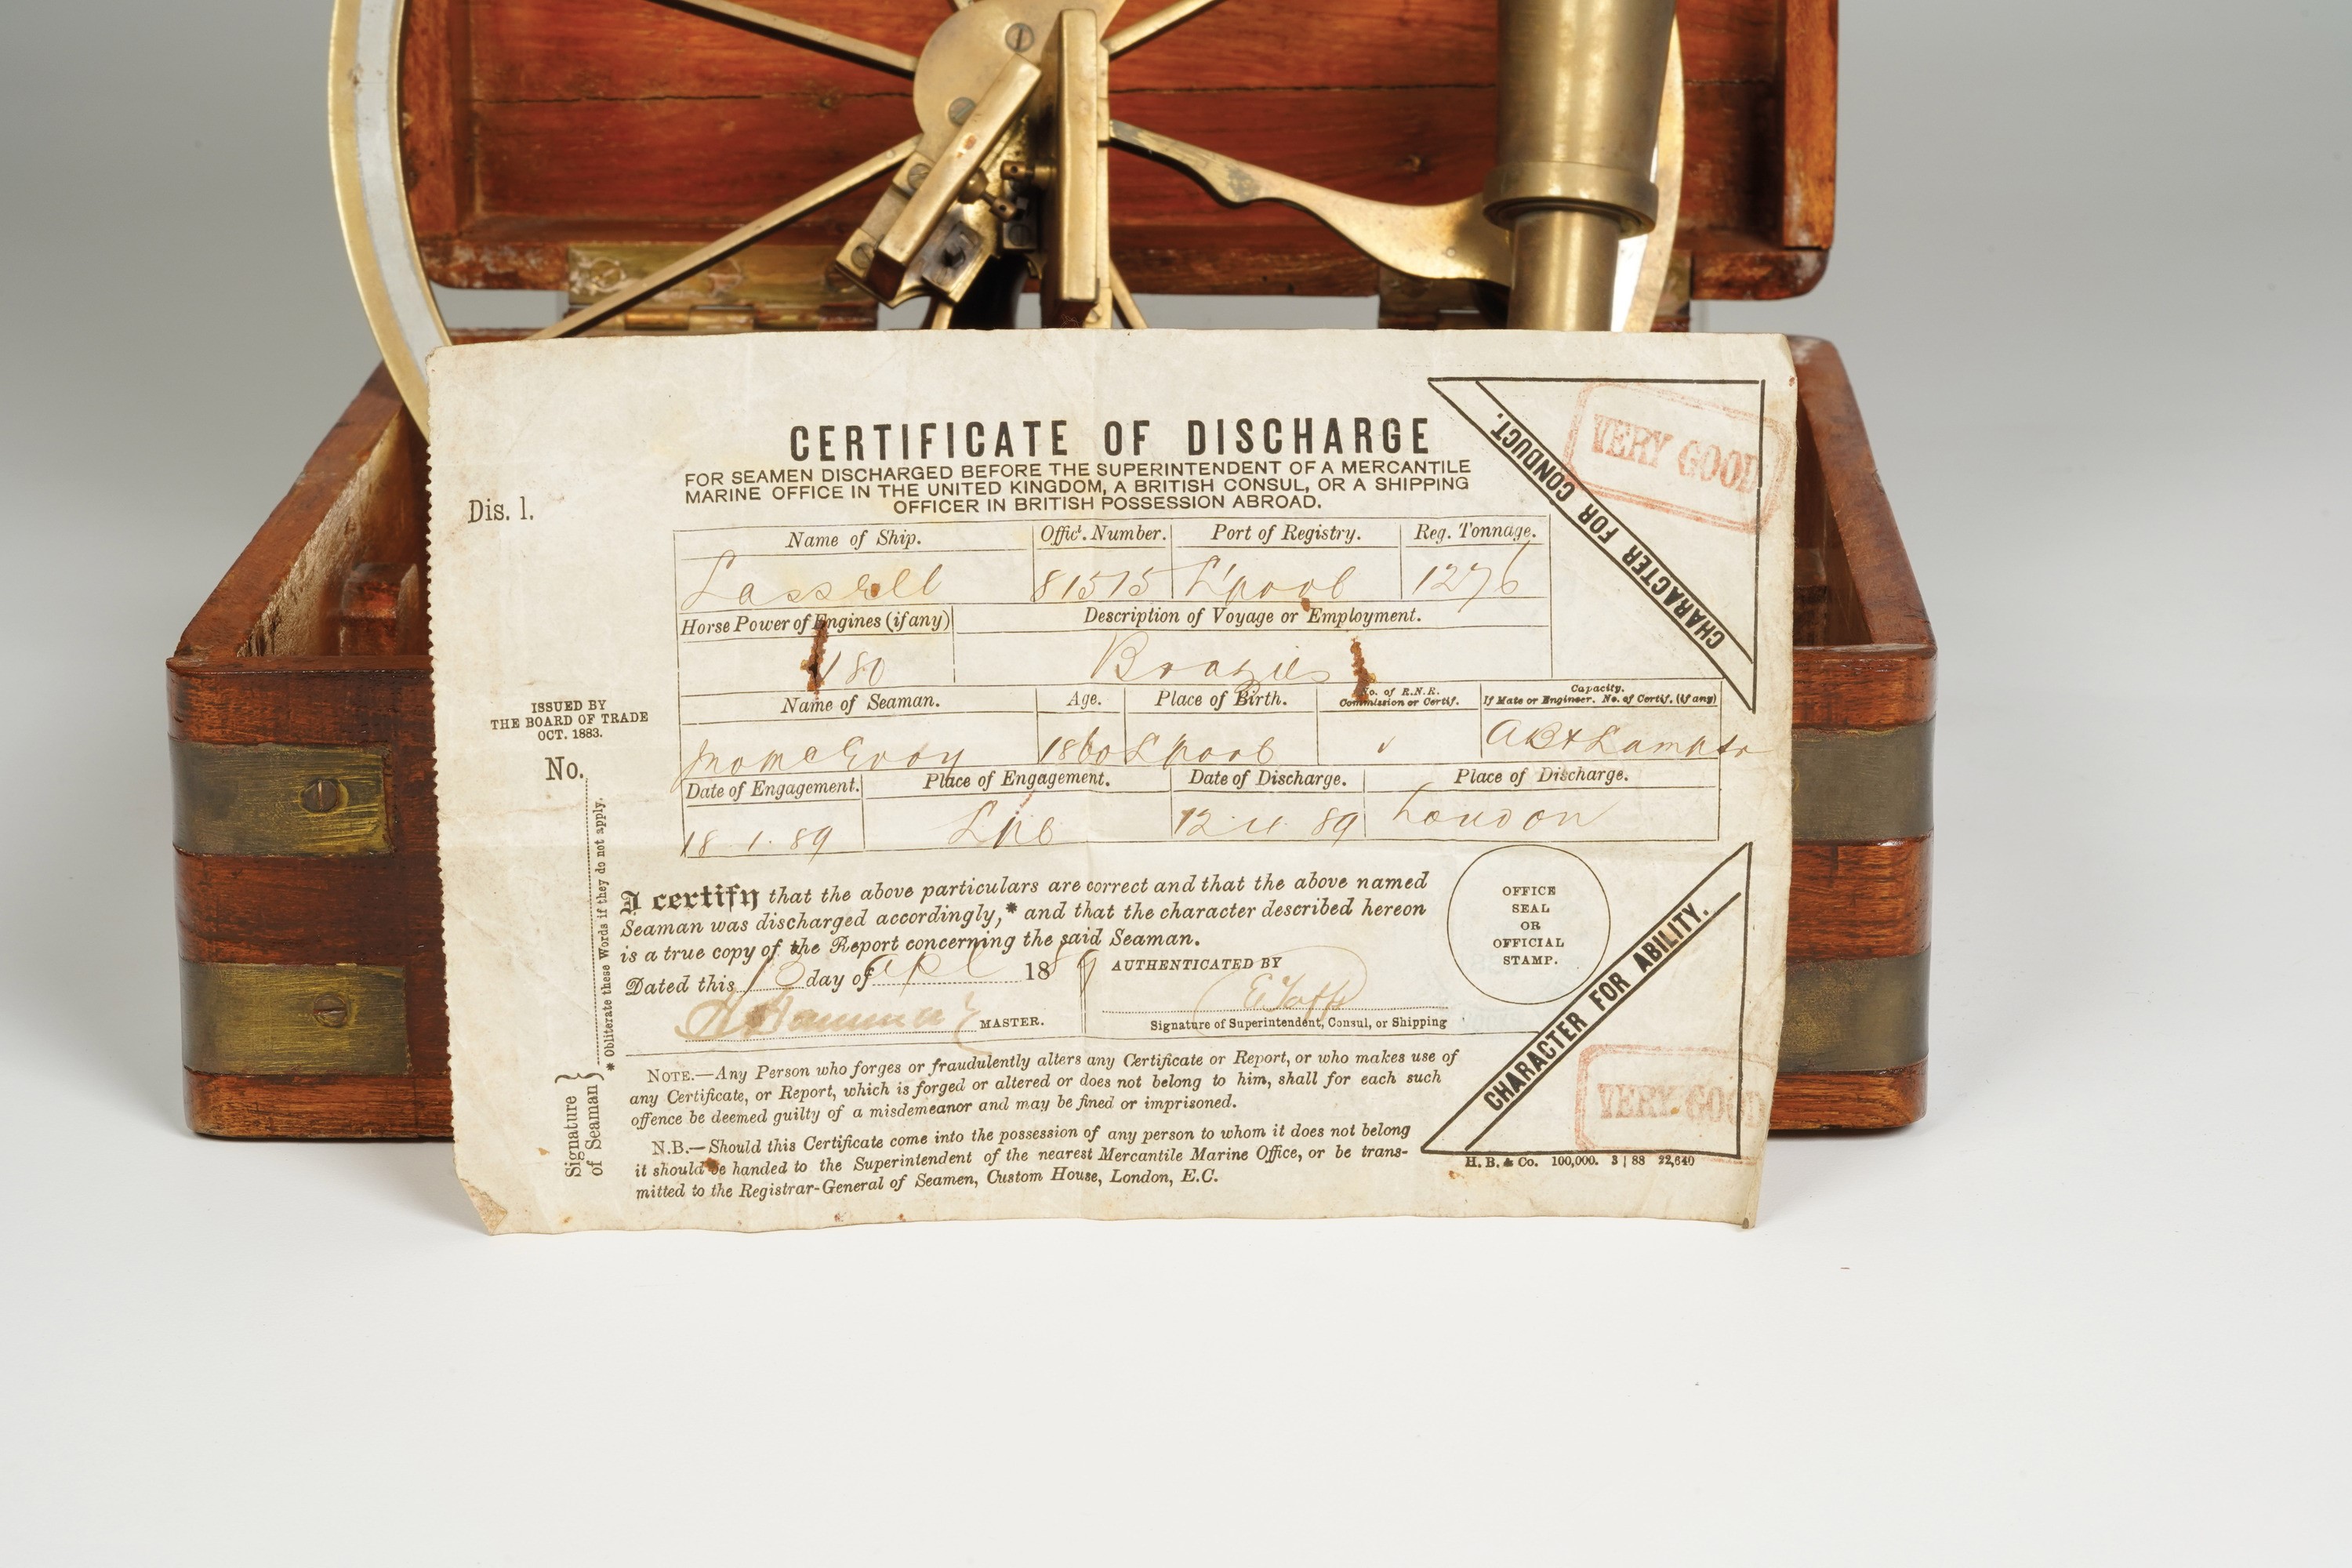 CERTIFICATE OF DISCHARGE
FOR SEAMEN DISCHARGED BEFORE THE SUPERINTENDENT OF A MERCANTILE
MARINE OFFICE IN THE UNITED KINGDOM, A BRITISH CONSUL, OR A SHIPPING
OFFICER IN BRITISH POSSESSION ABROAD.
Dis. 1.
CHARACTER FOR CONDUCT.
VERY GOOD
Name of Ship. Offic'l. Number. Port of Registry. Reg. Tonnage.
Lassell 81515 L'pool 1276
Horse Power of Engines (if any) Description of Voyage or Employment.
180 Brazils
ISSUED BY
THE BOARD OF TRADE
OCT. 1883.
No.
Name of Seaman. Age. Place of Birth. No. of R.N.R. Commission or Certif. Capacity. If Mate or Engineer. No. of Certif. (if any)
McEvoy 1860 L'pool AB &
Date of Engagement. Place of Engagement. Date of Discharge. Place of Discharge.
18.1.89 89 London
* Obliterate these Words if they do not apply.
I certify that the above particulars are correct and that the above named
Seaman was discharged accordingly,* and that the character described hereon
is a true copy of the Report concerning the said Seaman.
Dated this 13 day of Apl 1889 AUTHENTICATED BY
MASTER.
Signature of Superintendent, Consul, or Shipping
OFFICE
SEAL
OR
OFFICIAL
STAMP.
CHARACTER FOR ABILITY.
VERY GOOD
Signature
of Seaman
NOTE.—Any Person who forges or fraudulently alters any Certificate or Report, or who makes use of
any Certificate, or Report, which is forged or altered or does not belong to him, shall for each such
offence be deemed guilty of a misdemeanor and may be fined or imprisoned.
N.B.—Should this Certificate come into the possession of any person to whom it does not belong
it should be handed to the Superintendent of the nearest Mercantile Marine Office, or be trans-
mitted to the Registrar-General of Seamen, Custom House, London, E.C.
H. B. & Co. 100,000. 3 | 88 22,640